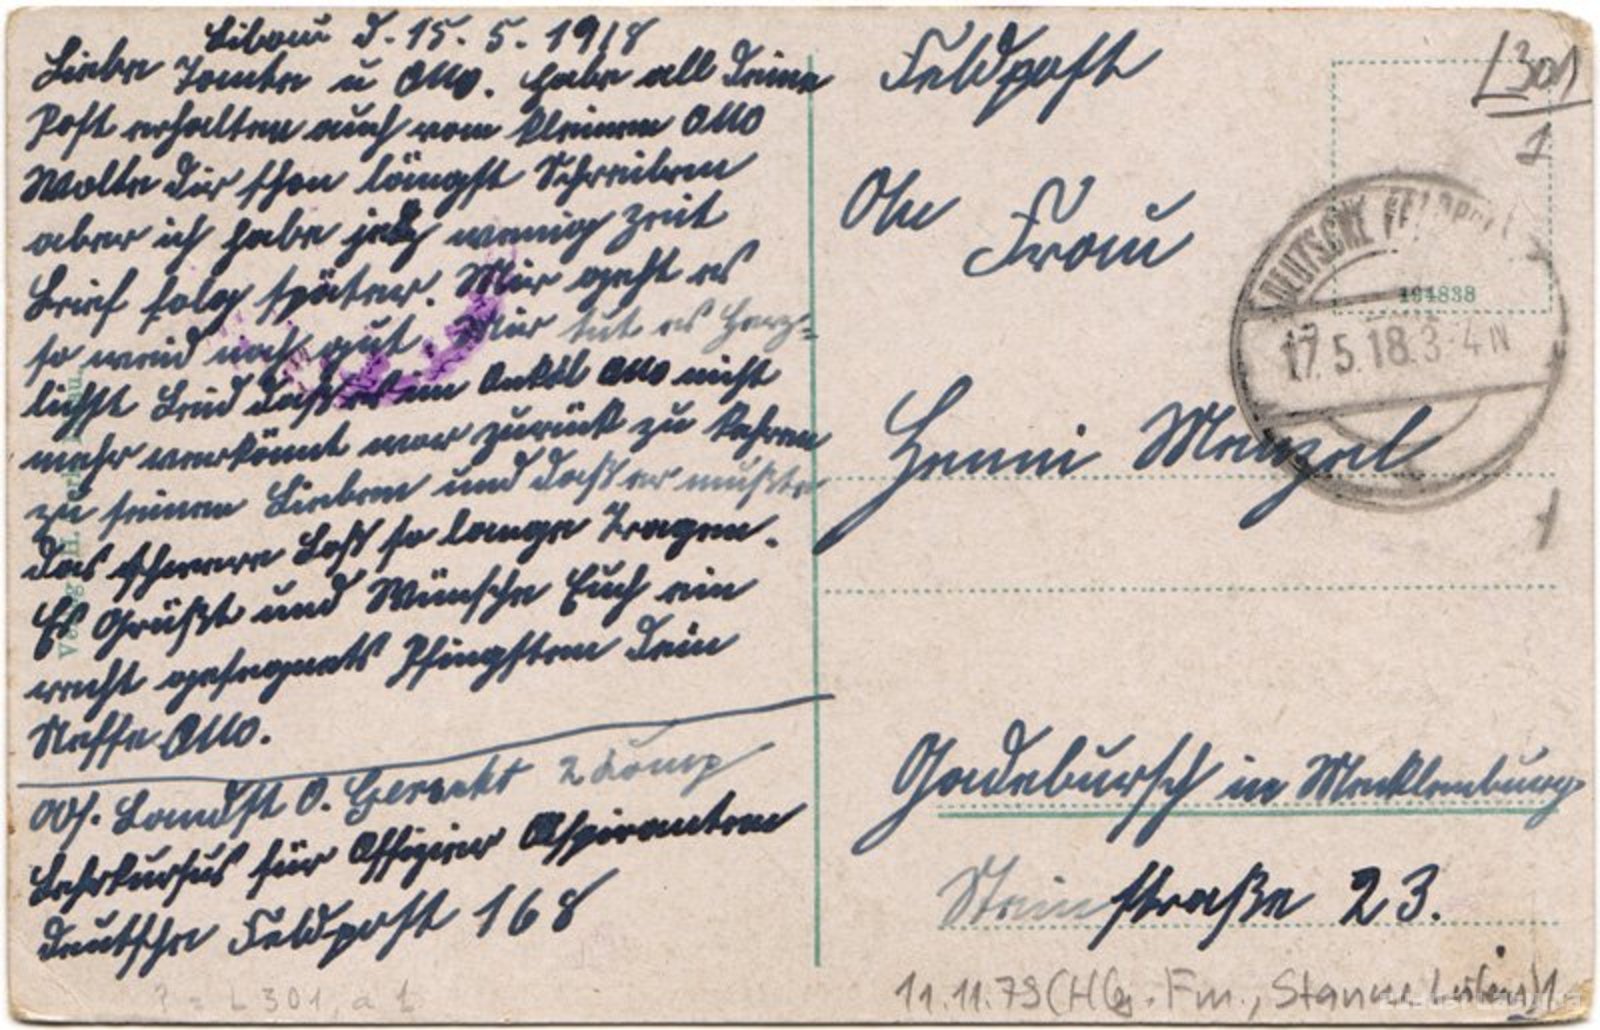 Libau d. 15. 5. 1918
Liebe Tante u Otto. Habe all Deine
Post erhalten auch vom kleinen Otto
Wollte Dir schon längst Schreiben
aber ich habe jetz wenig Zeit
Brief folg später. Mir geht es
so weid noch gut. Mir tut es Herz-
lichst Leid daß es im Onkel Otto nicht
mehr verkönnt war zurück zu kehren
zu seinen Lieben und daß er mußte
das schwere Loß so lange Tragen.
Es Grüßt und Wünsche Euch ein
recht gesegnets Pfingsten Dein
Neffe Otto.
Abs. Landst O. 2 Komp
Lehrkursus für Offizier Aspiranten
Deutsche Feldpost 168
Feldpost
An
Frau
Henni Menzel
Gadebusch in Mecklenburg
Steinstraße 23.
L301
1
DEUTSCHE FELDPOST
194838
17.5.18.3-4N
? = L 301, a 1
11.11.79 (HGg. Fm.,